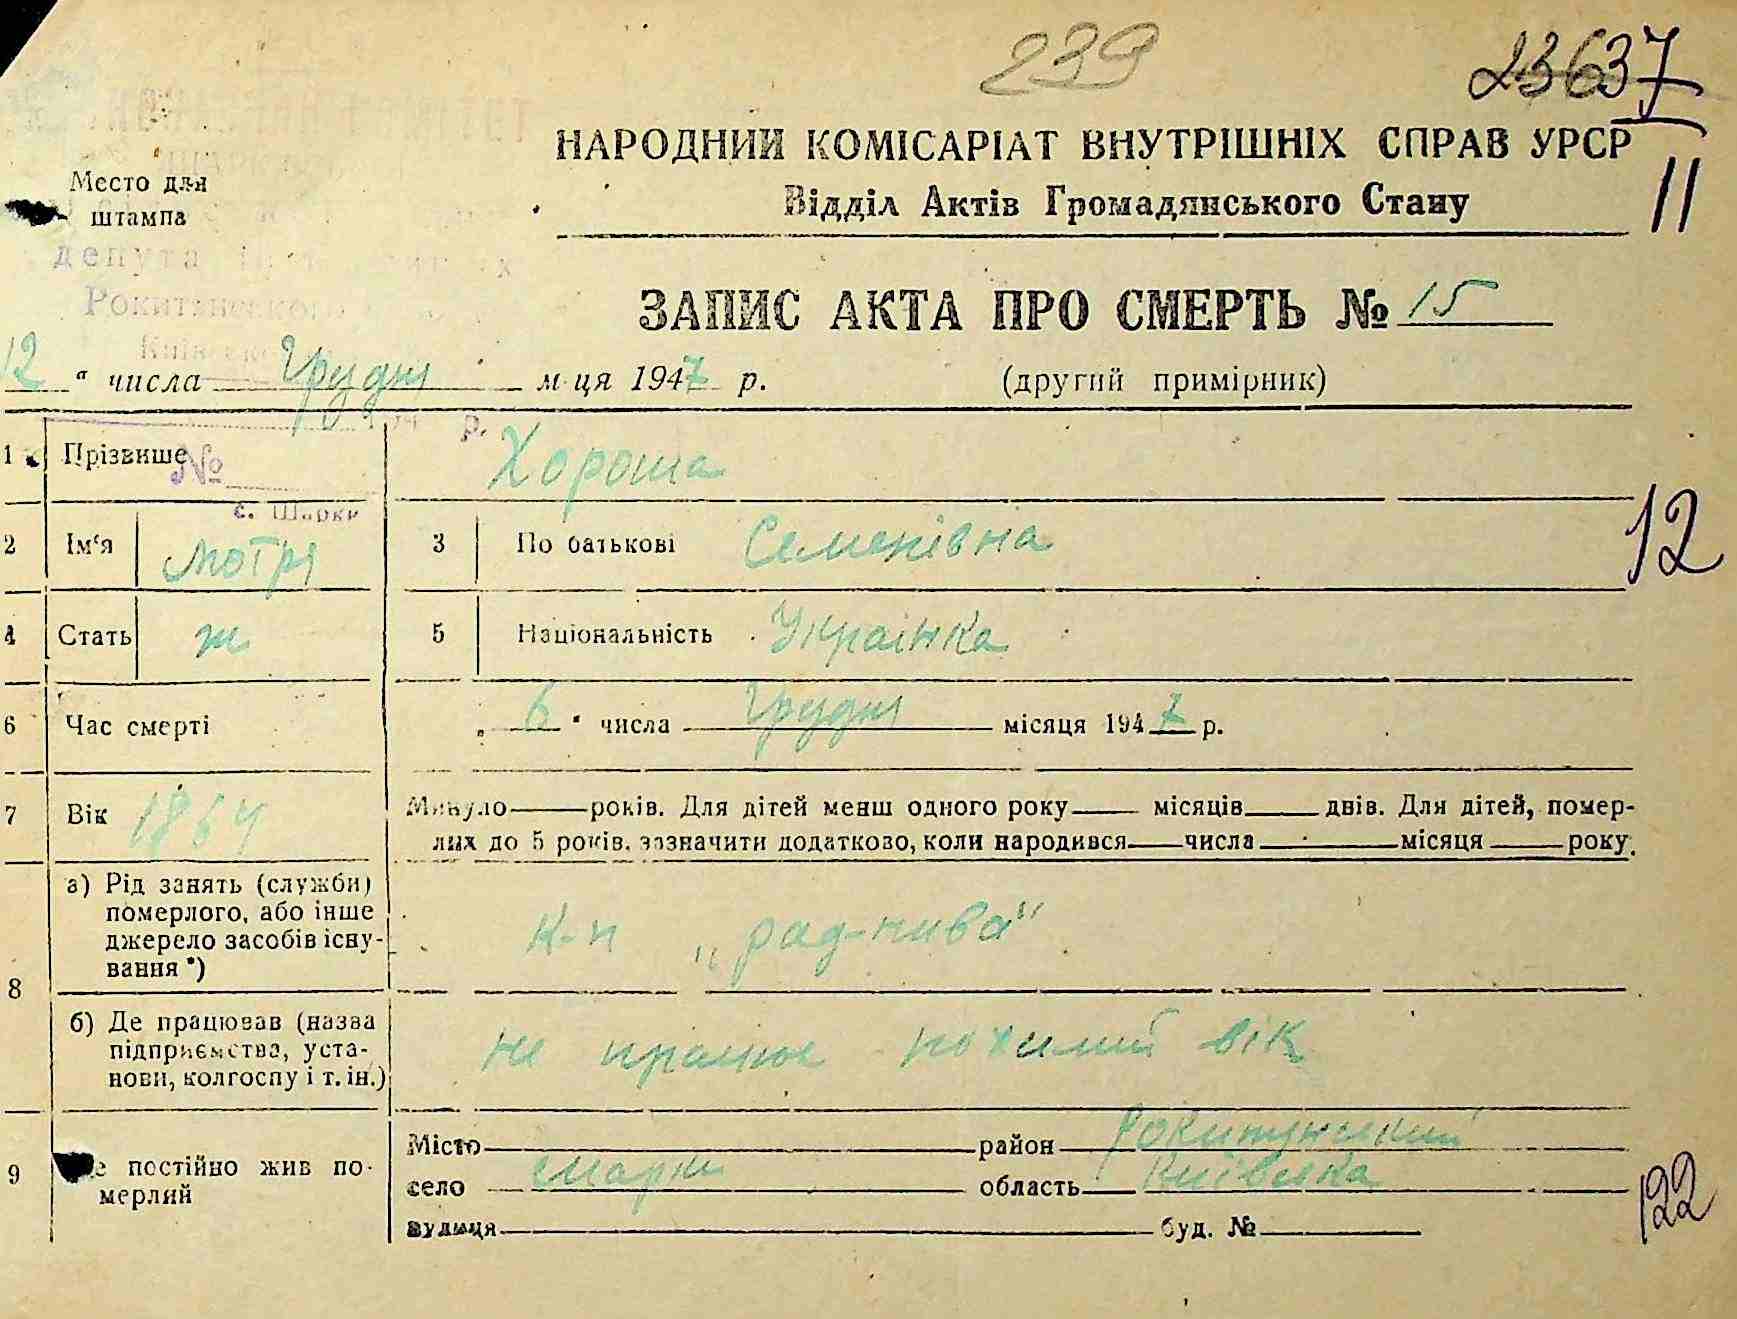 239
23637
НАРОДНИЙ КОМІСАРІАТ ВНУТРІШНІХ СПРАВ УРСР
11
Место для
штампа
Відділ Актів Громадянського Стану
депута
Рокитянського
ЗАПИС АКТА ПРО СМЕРТЬ № 15
12 " числа Грудня м-ця 1947 р. (другий примірник)
р.
1 Прізвище Хороша
№
с. Шарки
2 Ім'я Мотря 3 По батькові Семенівна
12
4 Стать ж 5 Національність Українка
6 Час смерті „ 6 " числа Грудня місяця 1947 р.
7 Вік 1864 Минуло — років. Для дітей менш одного року — місяців — днів. Для дітей, помер-
лих до 5 років, зазначити додатково, коли народився — числа — місяця — року.
8 а) Рід занять (служби) померлого, або інше джерело засобів існу-вання *) к-п „рад-нива"
б) Де працював (назва підприємства, уста-нови, колгоспу і т. ін.) не працює похилий вік
9 е постійно жив по-мерлий
Місто — район Рокитянський
село Шарки область Київська
122
вулиця — буд. № —